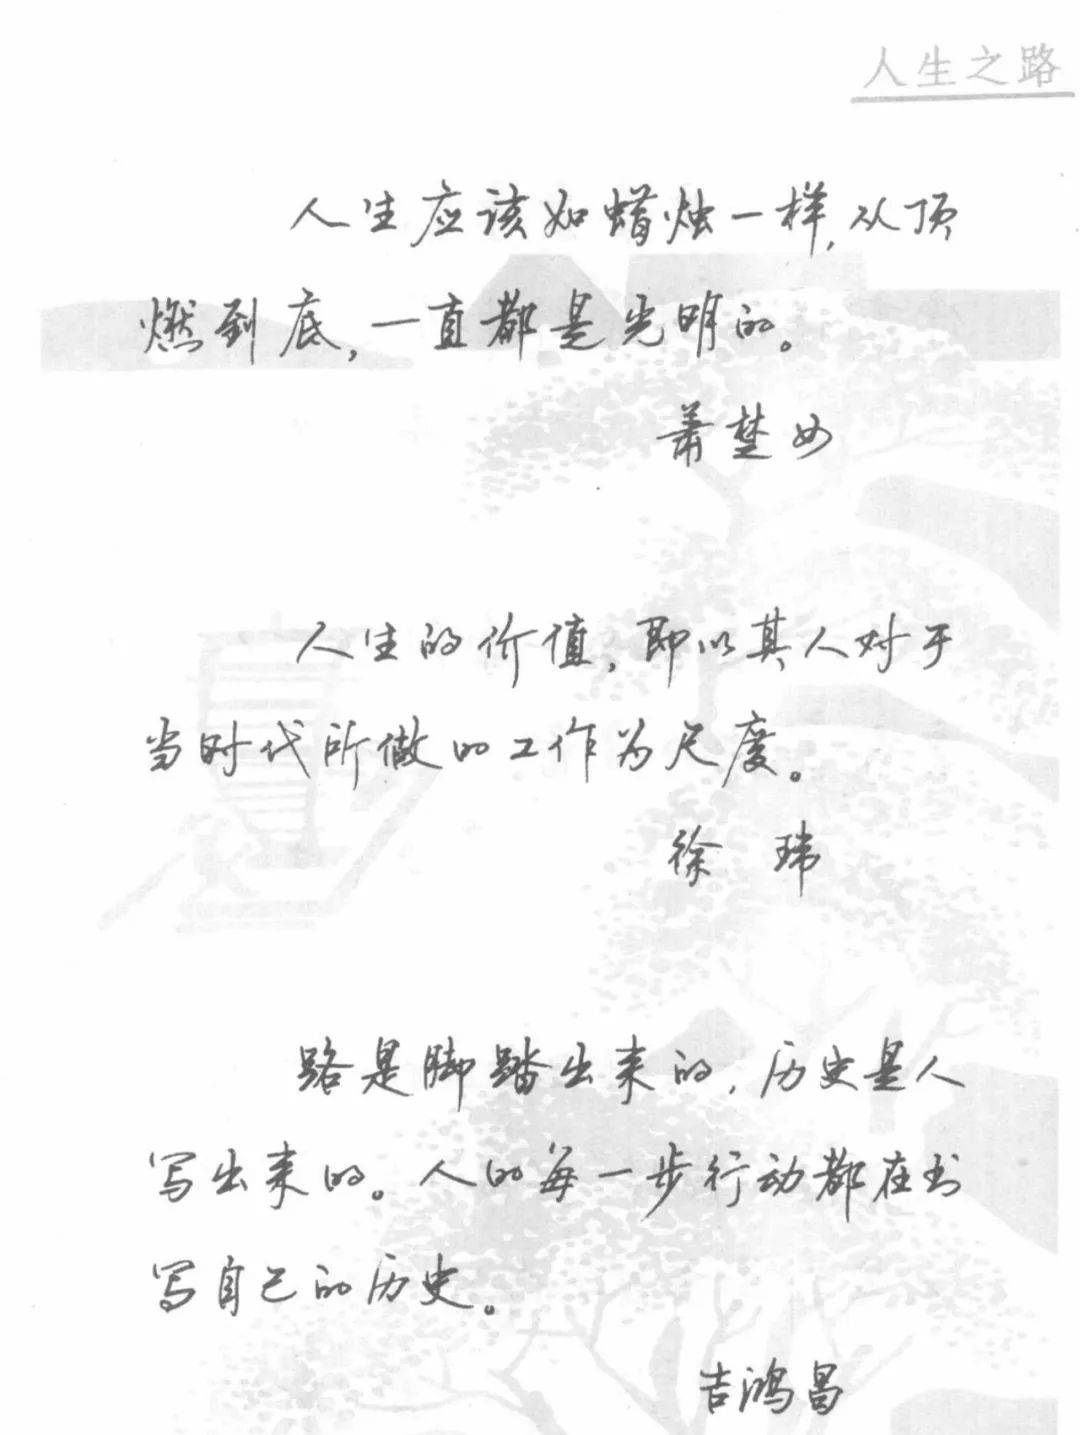 人生之路
人生应该如蜡烛一样，从顶
燃到底，一直都是光明的。
萧楚女
人生的价值，即以其人对于
当时代所做的工作为尺度。
徐玮
路是脚踏出来的，历史是人
写出来的。人的每一步行动都在书
写自己的历史。
吉鸿昌